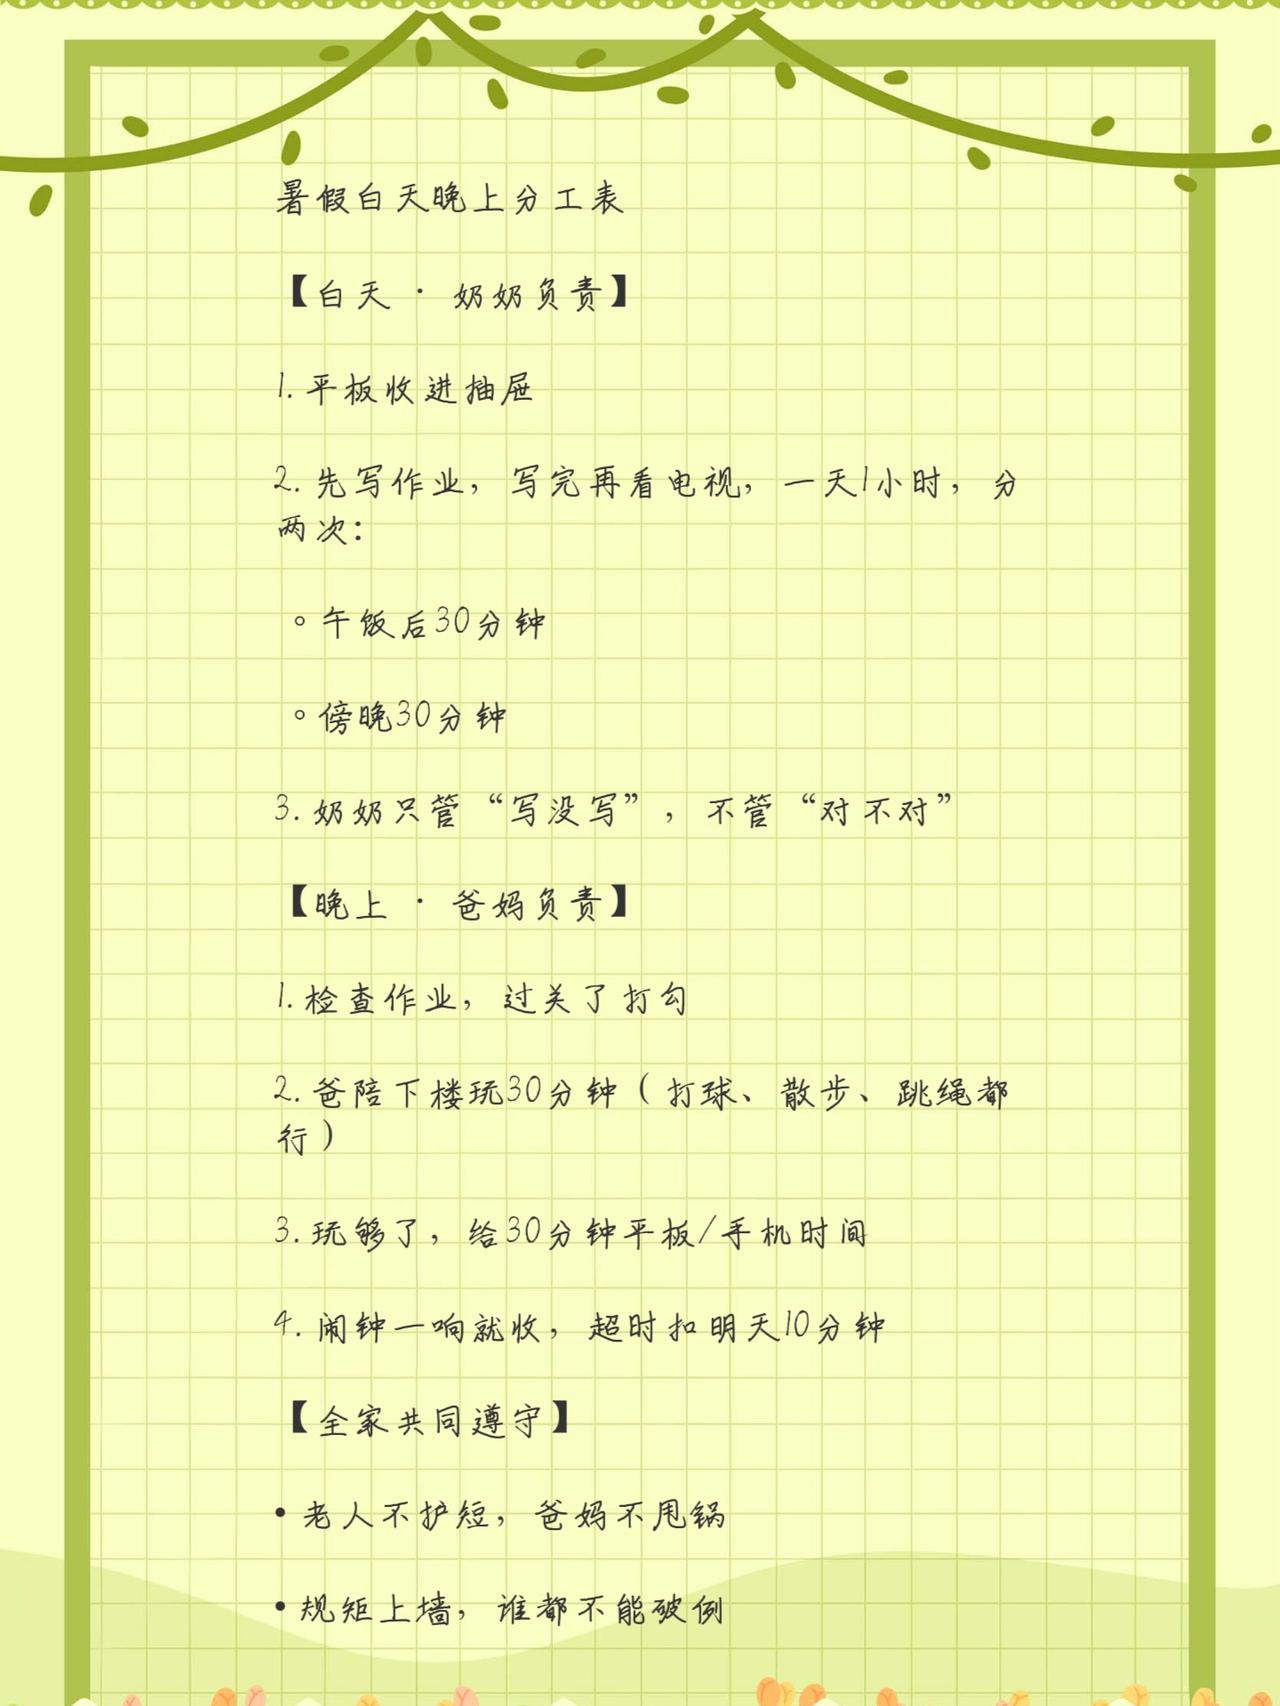 暑假白天晚上分工表
【白天 · 奶奶负责】
1. 平板收进抽屉
2. 先写作业，写完再看电视，一天1小时，分
两次：
◦ 午饭后30分钟
◦ 傍晚30分钟
3. 奶奶只管“写没写”，不管“对不对”
【晚上 · 爸妈负责】
1. 检查作业，过关了打勾
2. 爸陪下楼玩30分钟（打球、散步、跳绳都
行）
3. 玩够了，给30分钟平板/手机时间
4. 闹钟一响就收，超时扣明天10分钟
【全家共同遵守】
• 老人不护短，爸妈不甩锅
• 规矩上墙，谁都不能破例